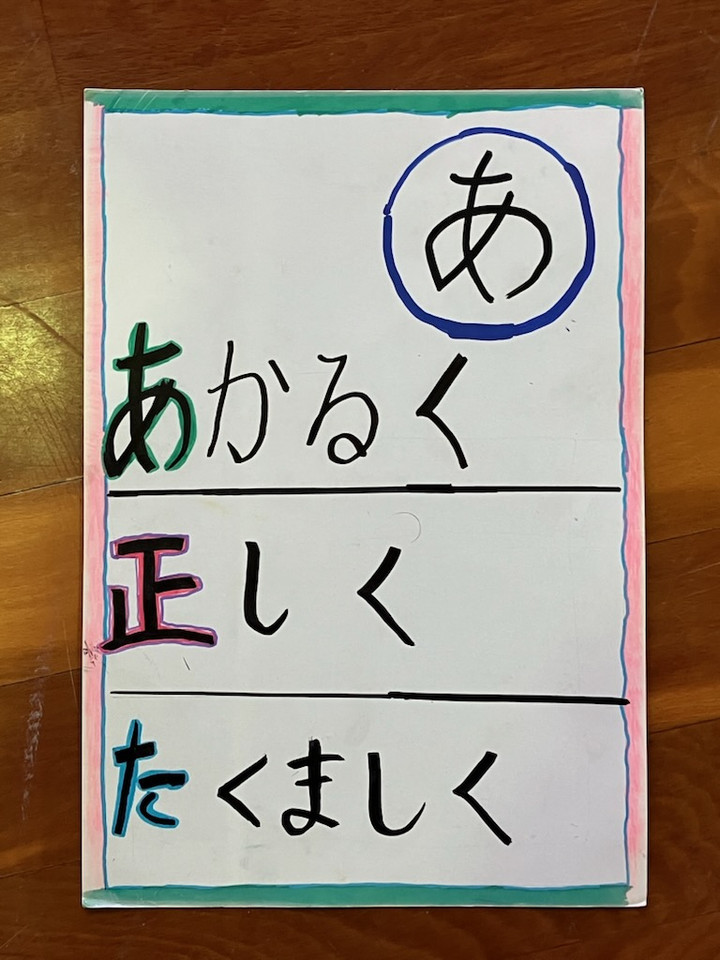 あ
あかるく
正しく
たくましく